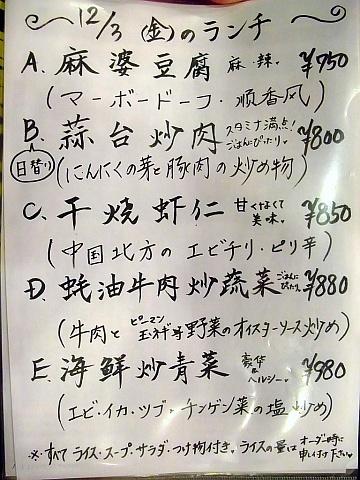 12/3 (金)のランチ
A. 麻婆豆腐 麻・辣。 ¥750
(マーボードーフ・順香風)
B. 蒜台炒肉 スタミナ満点!ごはんにぴったり。 ¥800
日替り (にんにくの芽と豚肉の炒め物)
C. 干焼虾仁 甘くなくて美味。 ¥850
(中国北方のエビチリ・ピリ辛)
D. 蚝油牛肉炒蔬菜 ごはんにぴったり。 ¥880
(牛肉とピーマン玉ネギ等野菜のオイスターソース炒め)
E. 海鮮炒青菜 豪華&ヘルシー。 ¥980
(エビ・イカ・ツブ・チンゲン菜の塩炒め)
※すべてライス・スープ・サラダ・つけ物付き。ライスの量はオーダー時に申し付け下さい。